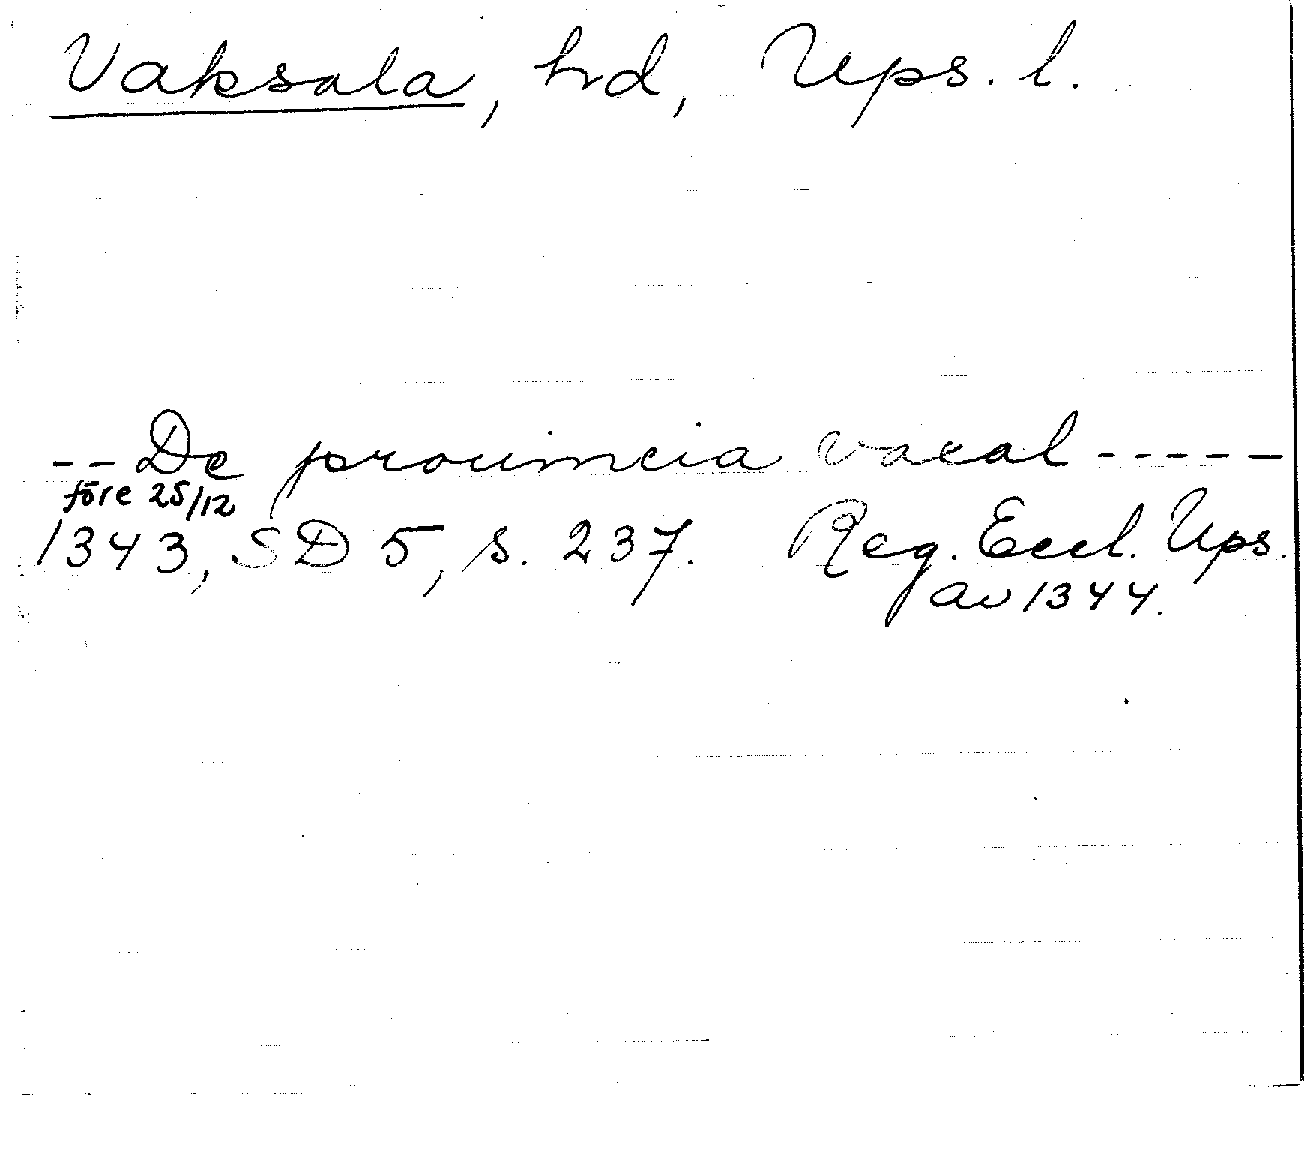 Vaksala, hrd, Ups. l.
-- De prouincia vacal -----
före 25/12
1343, SD 5, s. 237. Reg. Eccl. Ups.
av 1344.